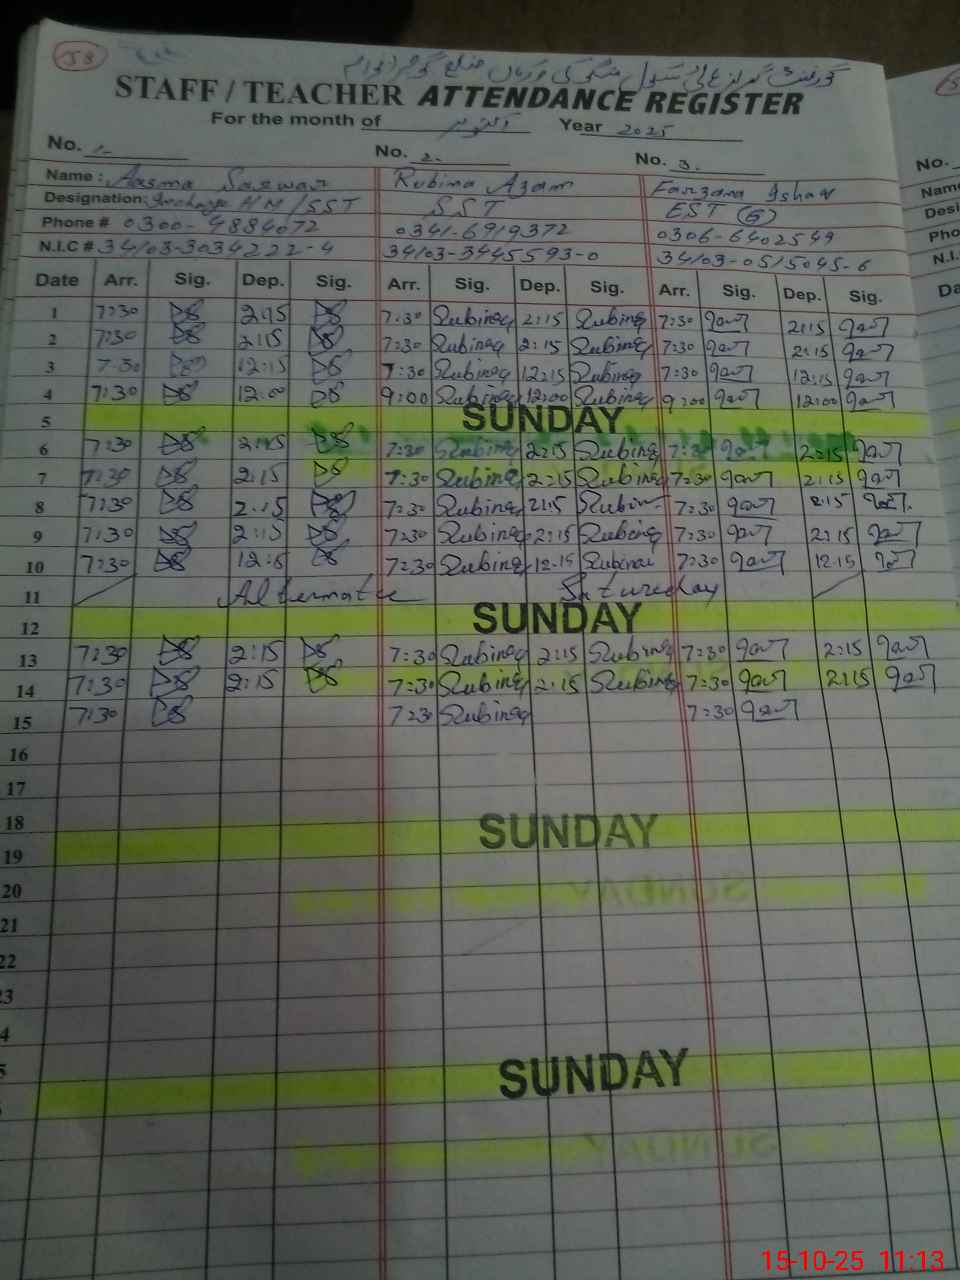 58
گورنمنٹ گرلز ہائی سکول منگوکی ورکاں ضلع گوجرانوالہ
STAFF / TEACHER ATTENDANCE REGISTER
For the month of اکتوبر Year 2025
No. 1. No. 2. No. 3.
Name : Aasma Sarwar Rubina Azam Farzana Ishaq
Designation: Incharge HM/SST SST EST (G)
Phone # 0300-4884072 0341-6919372 0306-6402549
N.I.C # 34103-3034222-4 34103-3445593-0 34103-0515045-6
Date Arr. Sig. Dep. Sig. Arr. Sig. Dep. Sig. Arr. Sig. Dep. Sig.
1 7:30 2:15 7:30 Rubina 2:15 Rubina 7:30 2:15
2 7:30 2:15 7:30 Rubina 2:15 Rubina 7:30 2:15
3 7:30 12:15 7:30 Rubina 12:15 Rubina 7:30 12:15
4 7:30 12:00 9:00 Rubina 12:00 Rubina 9:00 12:00
5 SUNDAY
6 7:30 2:15 7:30 Rubina 2:15 Rubina 7:30 2:15
7 7:30 2:15 7:30 Rubina 2:15 Rubina 7:30 2:15
8 7:30 2:15 7:30 Rubina 2:15 Rubina 7:30 2:15
9 7:30 2:15 7:30 Rubina 2:15 Rubina 7:30 2:15
10 7:30 12:15 7:30 Rubina 12:15 Rubina 7:30 12:15
11 Alternate Satureday
12 SUNDAY
13 7:30 2:15 7:30 Rubina 2:15 Rubina 7:30 2:15
14 7:30 2:15 7:30 Rubina 2:15 Rubina 7:30 2:15
15 7:30 7:30 Rubina 7:30
16
17
18
19 SUNDAY
20
21
22
23
4
5
SUNDAY
No.
Name
Desi
Pho
N.I.
Da
15-10-25 11:13